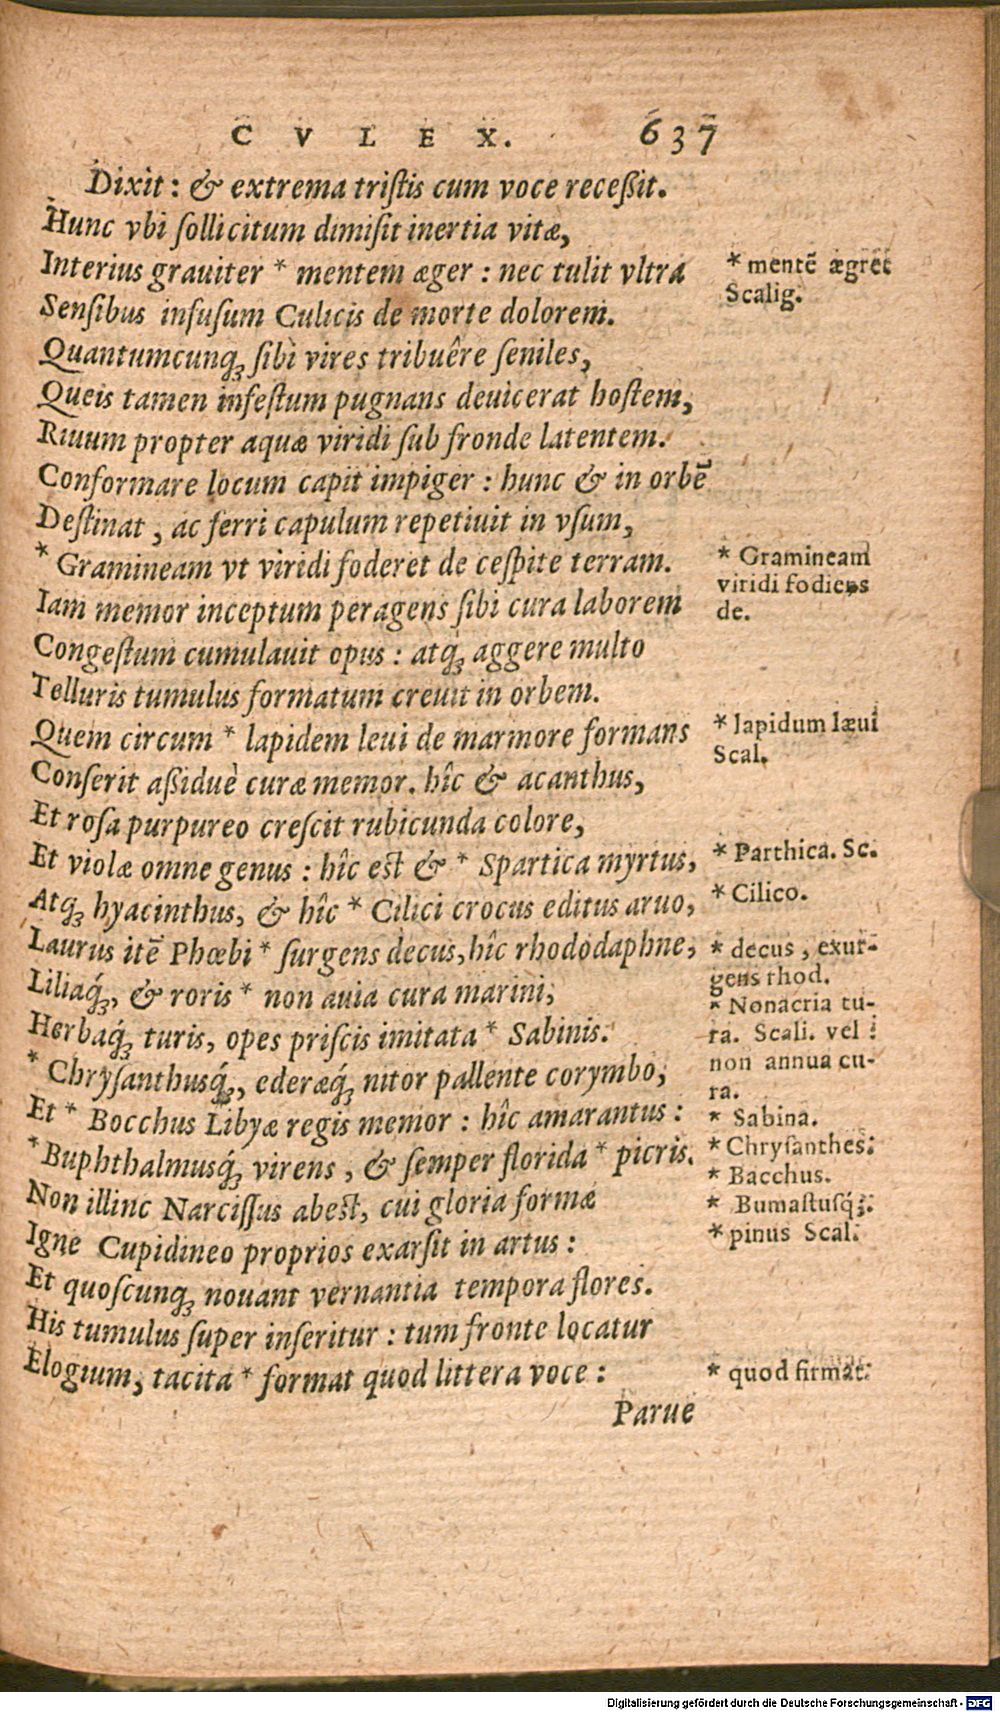 CVLEX. 637
Dixit: & extrema tristis cum voce recessit.
Hunc vbi sollicitum dimisit inertia vitæ,
Interius grauiter * mentem æger: nec tulit vltra
Sensibus infusum Culicis de morte dolorem.
Quantumcunqꝫ sibi vires tribuêre seniles,
Queis tamen infestum pugnans deuicerat hostem,
Riuum propter aquæ viridi sub fronde latentem.
Conformare locum capit impiger: hunc & in orbẽ
Destinat, ac ferri capulum repetiuit in vsum,
* Gramineam vt viridi foderet de cespite terram.
Iam memor inceptum peragens sibi cura laborem
Congestum cumulauit opus: atqꝫ́ aggere multo
Telluris tumulus formatum creuit in orbem.
Quem circum * lapidem leui de marmore formans
Conserit assiduè curæ memor. hîc & acanthus,
Et rosa purpureo crescit rubicunda colore,
Et violæ omne genus: hîc est & * Spartica myrtus,
Atqꝫ hyacinthus, & hîc * Cilici crocus editus aruo,
Laurus itẽ Phœbi * surgens decus, hîc rhododaphne,
Liliaqꝫ́, & roris * non auia cura marini,
Herbaqꝫ́ turis, opes priscis imitata * Sabinis.
* Chrysanthusqꝫ́, ederæqꝫ́ nitor pallente corymbo,
Et * Bocchus Libyæ regis memor: hîc amarantus:
* Buphthalmusqꝫ́ virens, & semper florida * picris.
Non illinc Narcissus abest, cui gloria formæ
Igne Cupidineo proprios exarsit in artus:
Et quoscunqꝫ nouant vernantia tempora flores.
His tumulus super inseritur: tum fronte locatur
Elogium, tacita * format quod littera voce:
Parue
* mentẽ ægrẽ
Scalig.
* Gramineam
viridi fodiens
de.
* lapidum læui
Scal.
* Parthica. Sc.
* Cilico.
* decus, exur-
gens rhod.
* Nonacria tu-
ra. Scali. vel :
non annua cu-
ra.
* Sabina.
* Chrysanthes:
* Bacchus.
* Bumastusqꝫ́:
* pinus Scal.
* quod firmat:
Digitalisierung gefördert durch die Deutsche Forschungsgemeinschaft - DFG